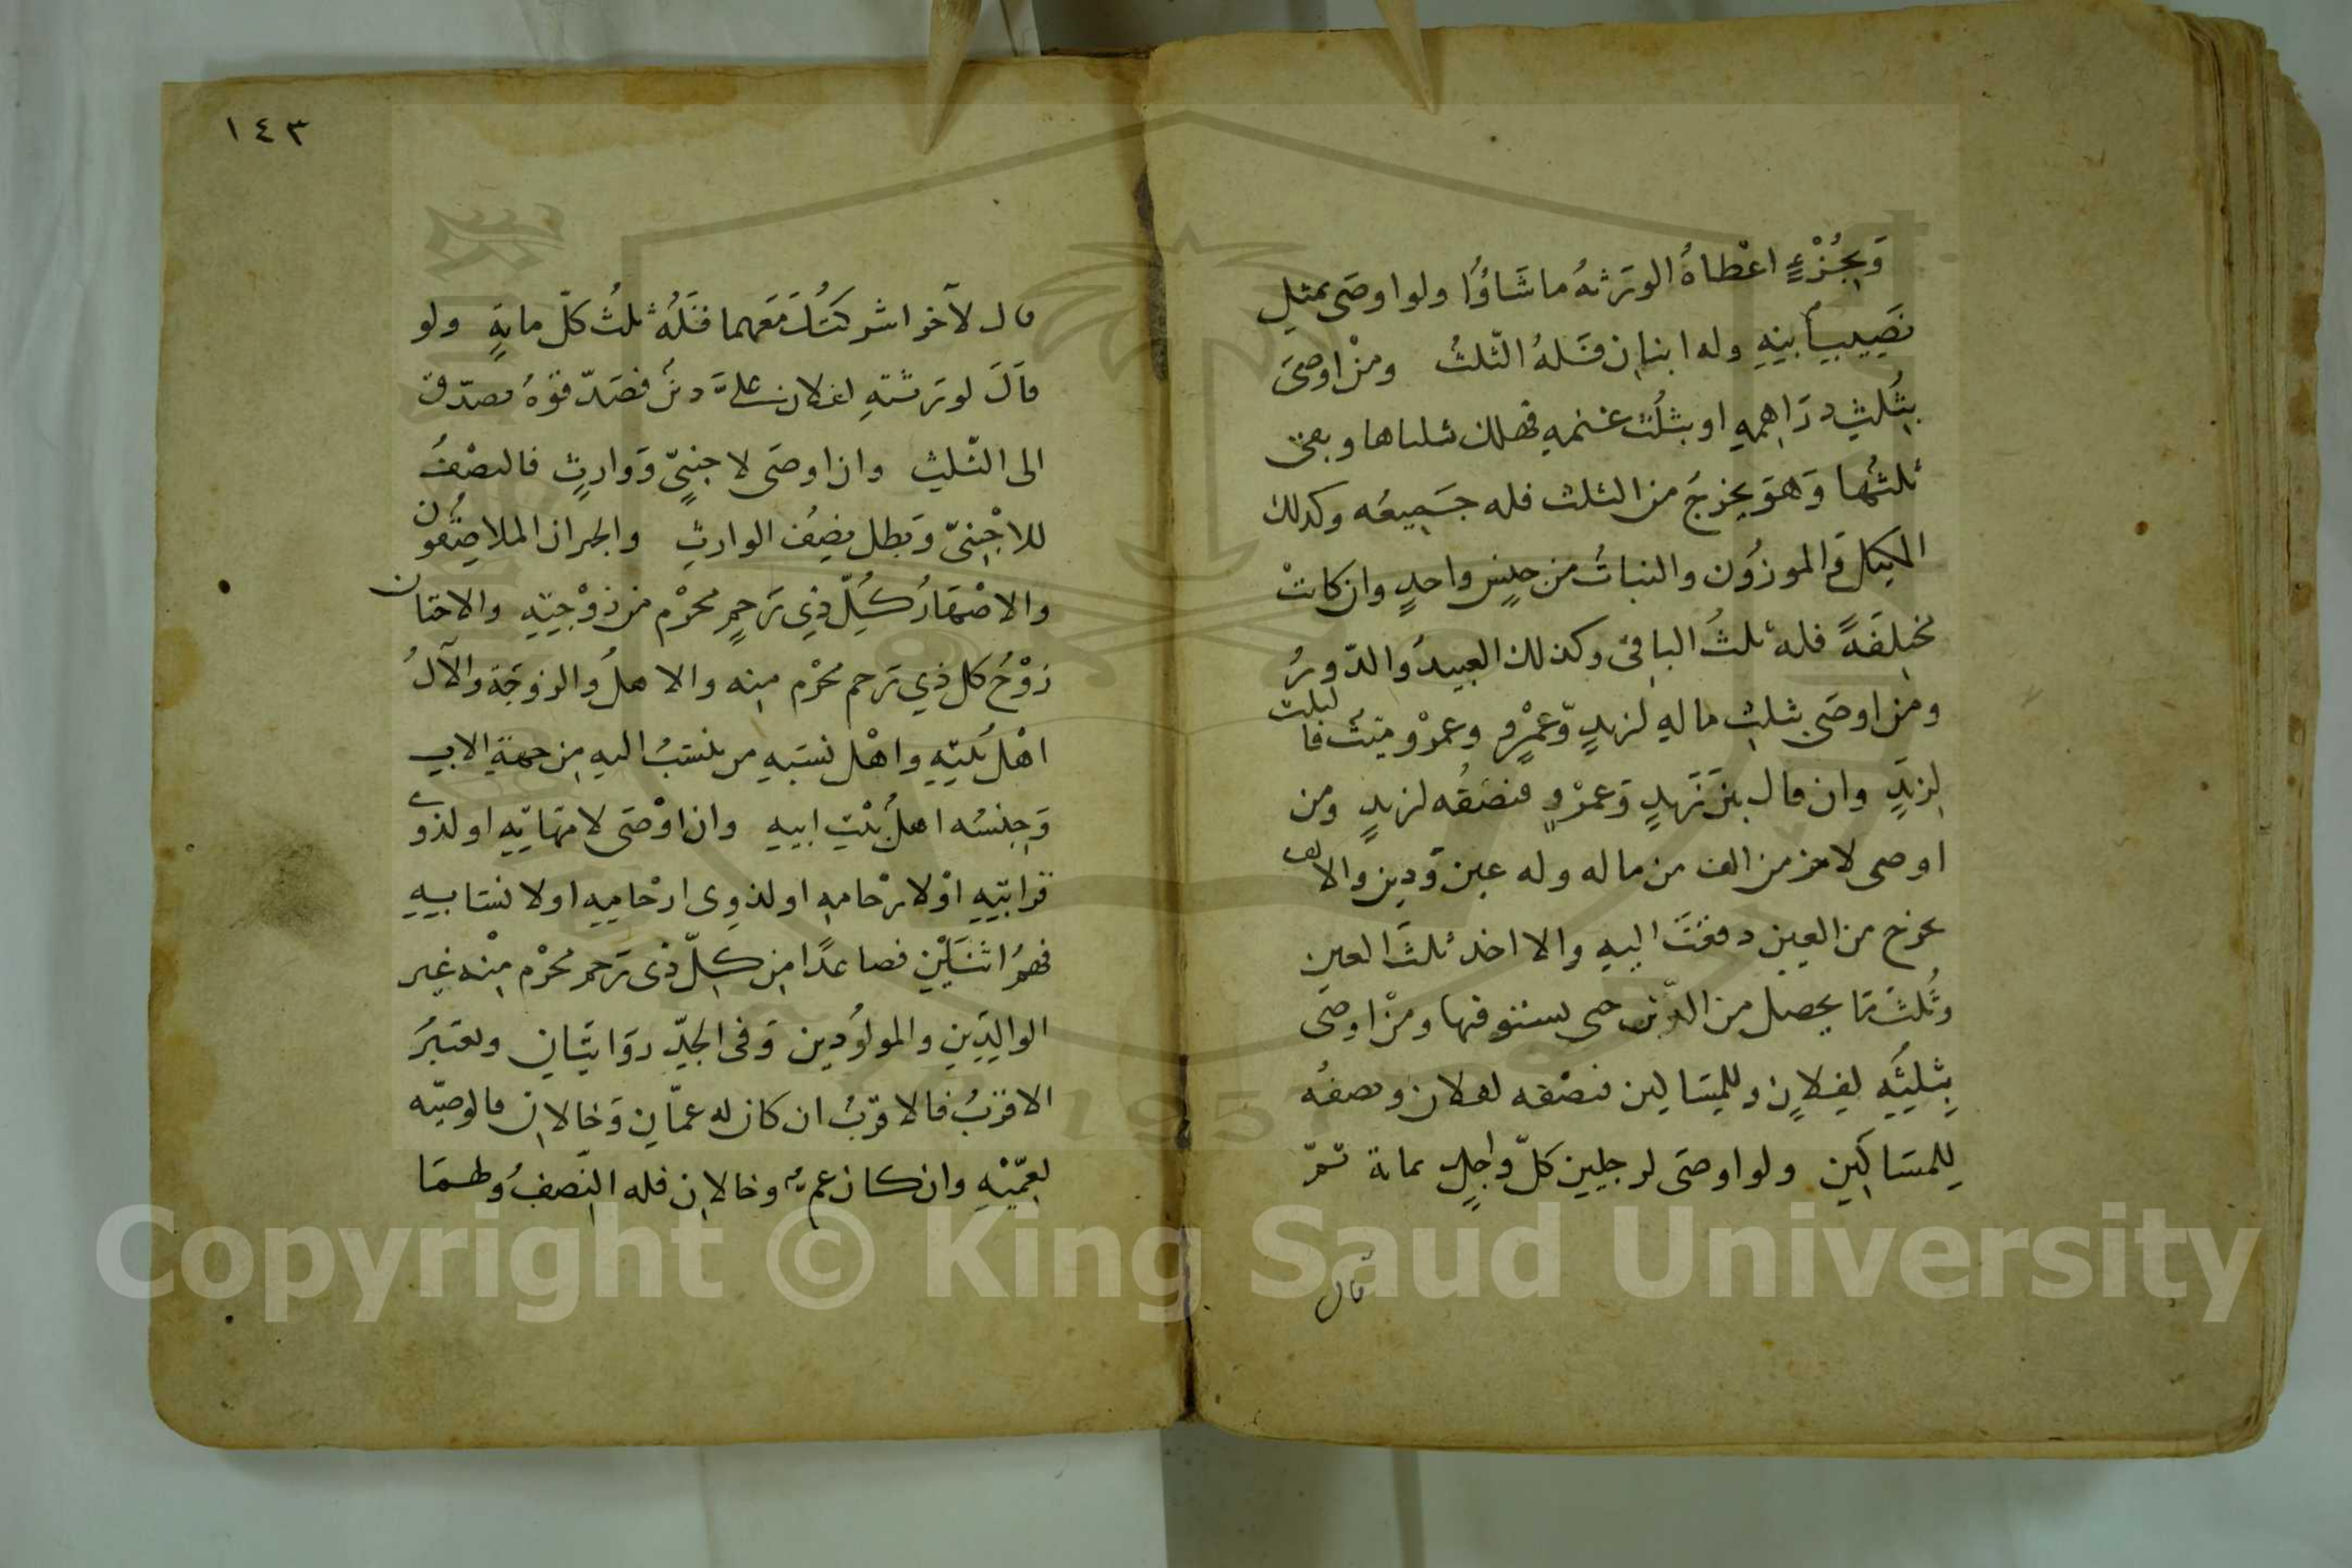 وَبِجُزْءٍ اعْطاهُ الورَثهُ ما شَاؤُا ولو اوصَى بمثلِ
نَصِيبِ ابنِهِ وله ابنانِ فَلهُ الثّلثُ ومنْ اوصَى
بِثُلثِ دَرَاهِمِهِ او بثُلُث غنمهِ فهلك ثلثاها وبقى
ثلثُها وَهوَ يخرجُ من الثلث فله جَمِيعُه وكذلك
المكيلُ والموزوُن والثيابُ من جِنسٍ واحدٍ وان كانتْ
مختلِفَةً فله ثلثُ الباقِى وكذلك العبيدُ والدّورُ
ومن اوصَى بثلثِ مالهِ لزيدٍ وّعمْرٍو وعمرْو ميّتٌ فالثلث
لزيدٍ وان قال بينَ زَيدٍ وَعمْرٍو فنصفُه لزيدٍ ومن
اوصى لاخر من الف من ماله وله عين وَدين والالف
يخرج من العين دفعَتْ اليهِ والا اخذ ثلثَ العين
وثُلثَ مَا يحصل من الدّين حتى يستوفها ومنْ اوصَى
بثلثِهِ لِفلانٍ وللمسَاكين فنصْفه لفلان ونصفُه
لِلمسَاكينِ ولو اوصَى لرجلين كلّ واحِدٍ بماة ثمّ
قال
١٤٣
قال لآخر اشركتُكَ مَعَهما فَلَهُ ثلثُ كلّ مايةٍ ولو
قالَ لورَثتهِ لفلان علىَّ دينٌ فصَدّقوّهُ يصدّق
الى الثّلثِ وان اوصَى لاجنبىٍّ وَوارثٍ فالنصْفُ
للاجْنبىّ وَبطل نصفُ الوارثِ والجيران الملاصِقُون
والاصْهَارُ كُلّ ذِي رَحِمٍ محْرْم من زوْجتِهِ والاختان
زوْجُ كل ذي رَحم محْرْم مِنه والاهلُ والزوجَة والآلُ
اهْلُ بَيْتِهِ واهْل نسَبهِ من ينتسبُ اليهِ مِن جهةِ الابِ
وَجِنسُه اهلُ بيْتِ ابيهِ وان اوْصَى لاقرَبائِهِ او لذوى
قرابتِهِ اوْ لارْحامهِ او لذوِى ارْحامِهِ او لانسَابِهِ
فهوُ اثنَيْنِ فصاعدًا من كلّ ذى رَحم محْرْم مِنْه غير
الوالِدَينِ والمولوُدين وَفى الجدّ روَايتَانِ ويعتبَرُ
الاقربُ فالاقربُ ان كان له عمّانِ وَخالانِ فالوصيّه
لعمّيْهِ وان كان عم وخالانِ فله النّصفُ ولهمَا